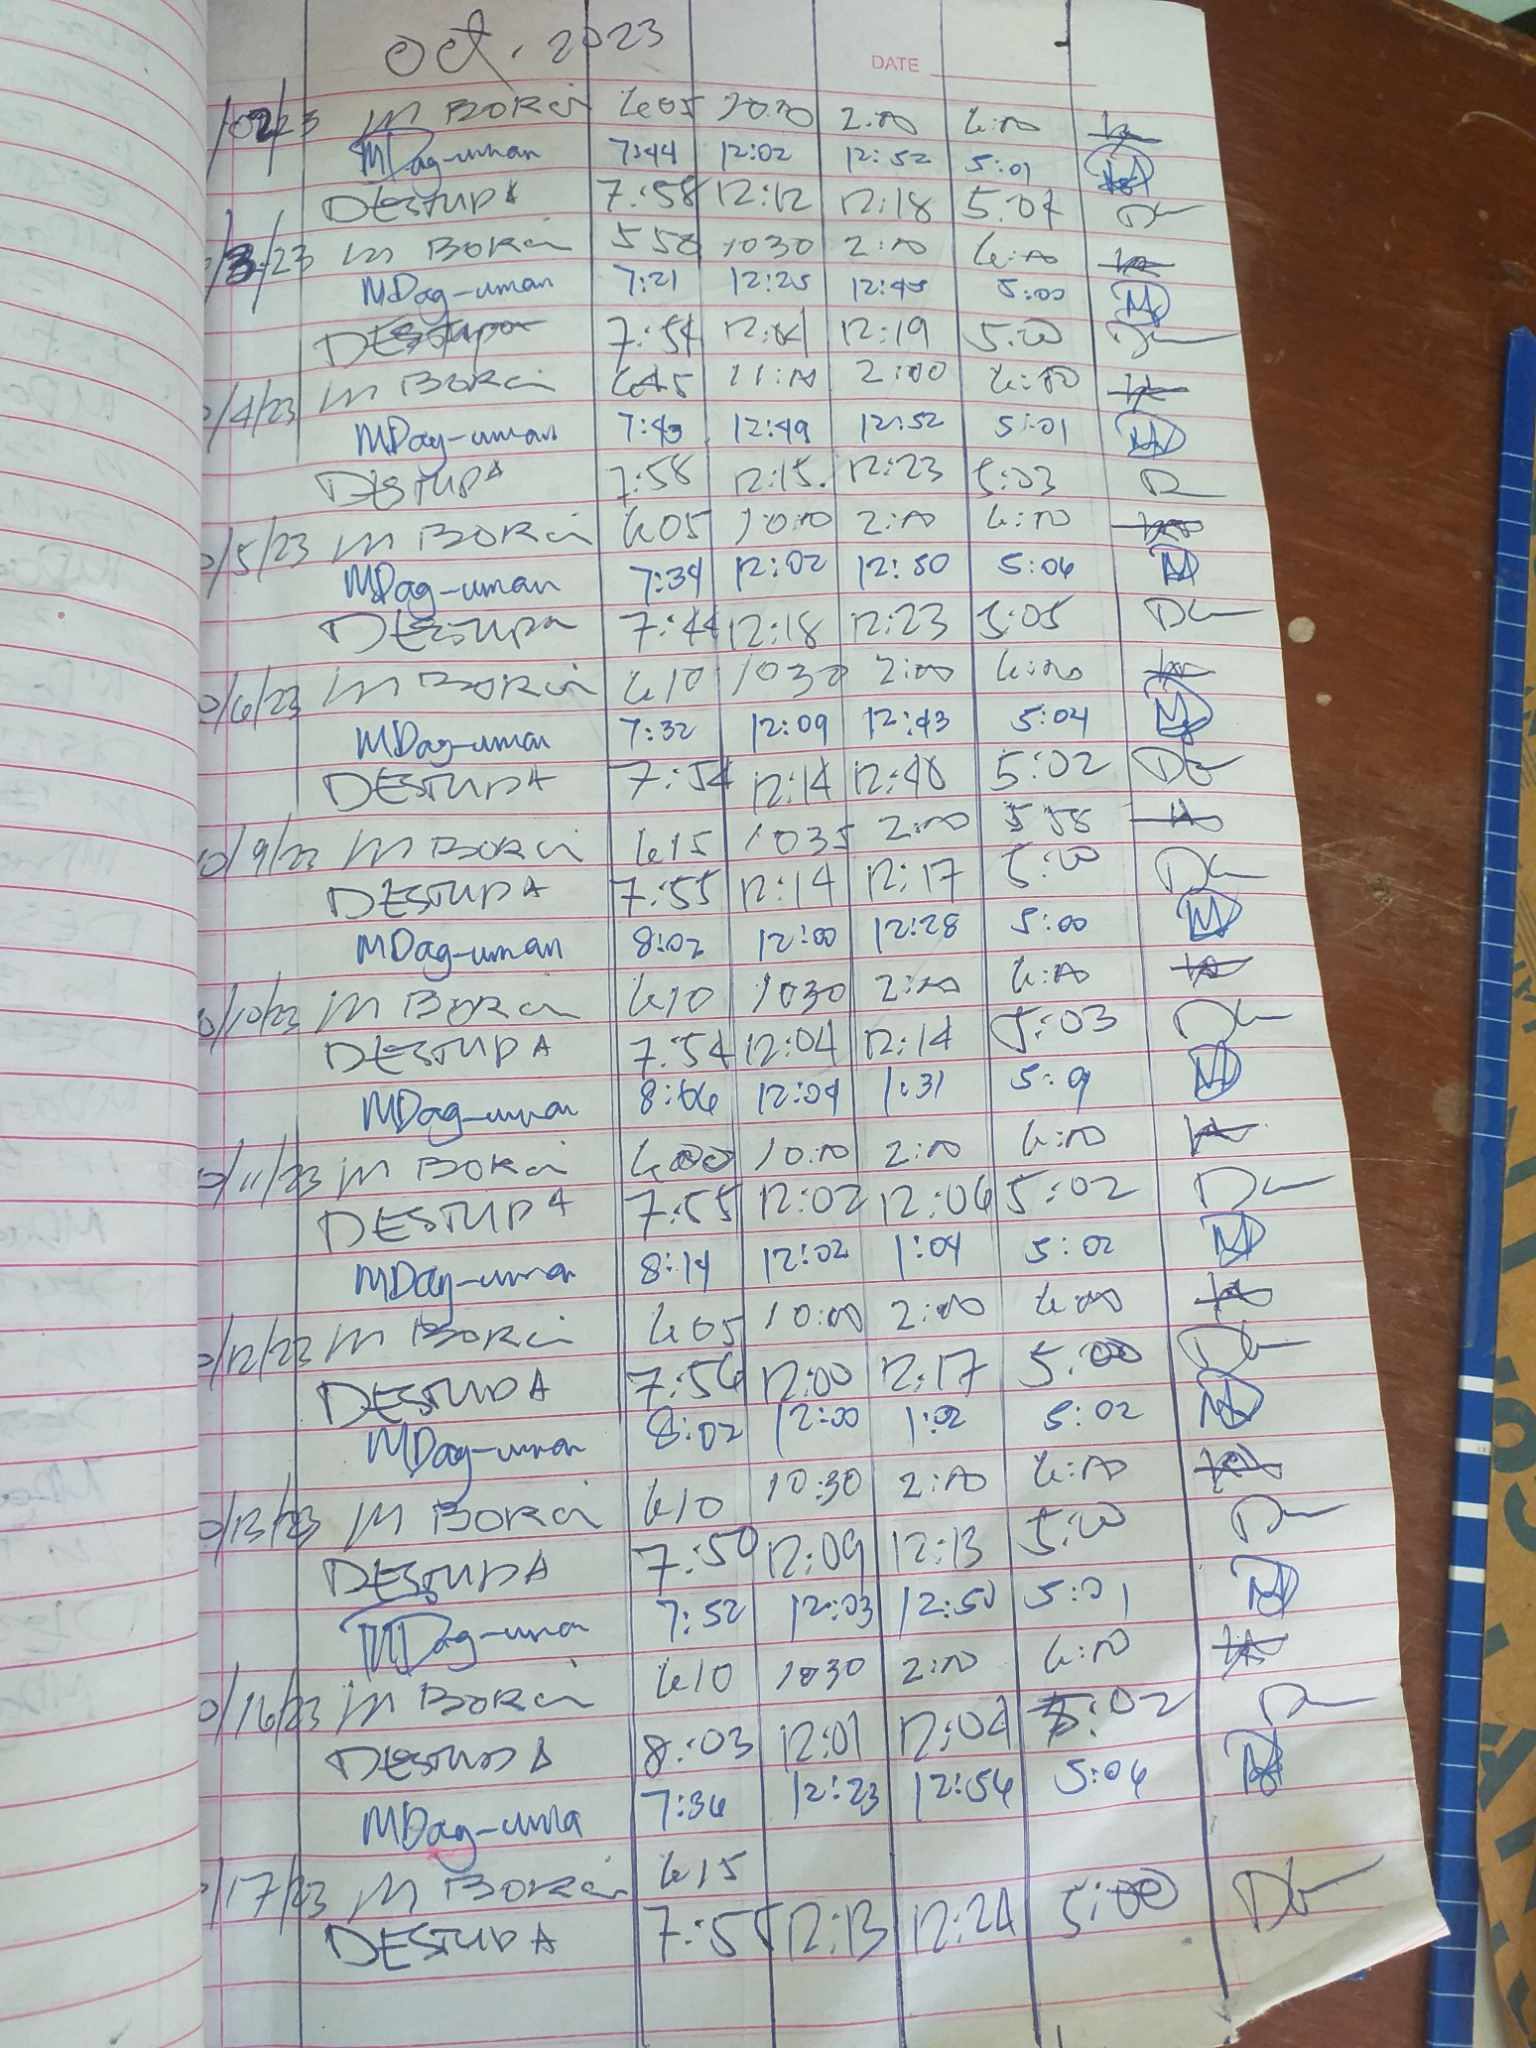 Oct. 2023
DATE
/02/23 M BORCi 605 10:00 2:00 6:00
MDag-uman 7:44 12:02 12:52 5:01
DESTUPA 7:58 12:12 12:18 5:07
/3/23 M BORCi 550 1030 2:00 6:00
MDag-uman 7:21 12:25 12:45 5:00
DEStupa 7:54 12:19 5:00
/4/23 M BORCi 645 11:00 2:00 6:00
MDag-uman 7:43 12:49 12:52 5:01
DESTUPA 7:58 12:15 12:23 5:03
/5/23 M BORCi 605 10:00 2:00 6:00
MDag-uman 7:34 12:02 12:50 5:06
DESTUPA 7:44 12:18 12:23 5:05
/6/23 M BORCi 610 1030 2:00 6:00
MDag-uman 7:32 12:09 12:43 5:04
DESTUPA 7:54 12:14 12:40 5:02
10/9/23 M BORCi 615 1035 2:00 558
DESTUPA 7:55 12:14 12:17 5:00
MDag-uman 8:02 12:00 12:28 5:00
0/10/23 M BORCi 610 1030 2:00 6:00
DESTUPA 7:54 12:04 12:14 5:03
MDag-uman 8:06 12:04 1:31 5:9
0/11/23 M BORCi 600 10:00 2:00 6:00
DESTUPA 7:55 12:02 12:06 5:02
MDag-uman 8:14 12:02 1:04 5:02
0/12/23 M BORCi 605 10:00 2:00 6:00
DESTUPA 7:56 12:00 12:17 5:00
MDag-uman 8:02 12:00 1:02 5:02
0/13/23 M BORCi 610 10:30 2:00 6:00
DESTUPA 7:50 12:09 12:13 5:00
MDag-uman 7:52 12:03 12:50 5:01
0/16/23 M BORCi 610 1030 2:00 6:00
DESTUPA 8:03 12:01 12:04 5:02
MDag-uma 7:36 12:23 12:56 5:06
/17/23 M BORCi 615
DESTUPA 7:55 12:13 12:24 5:00